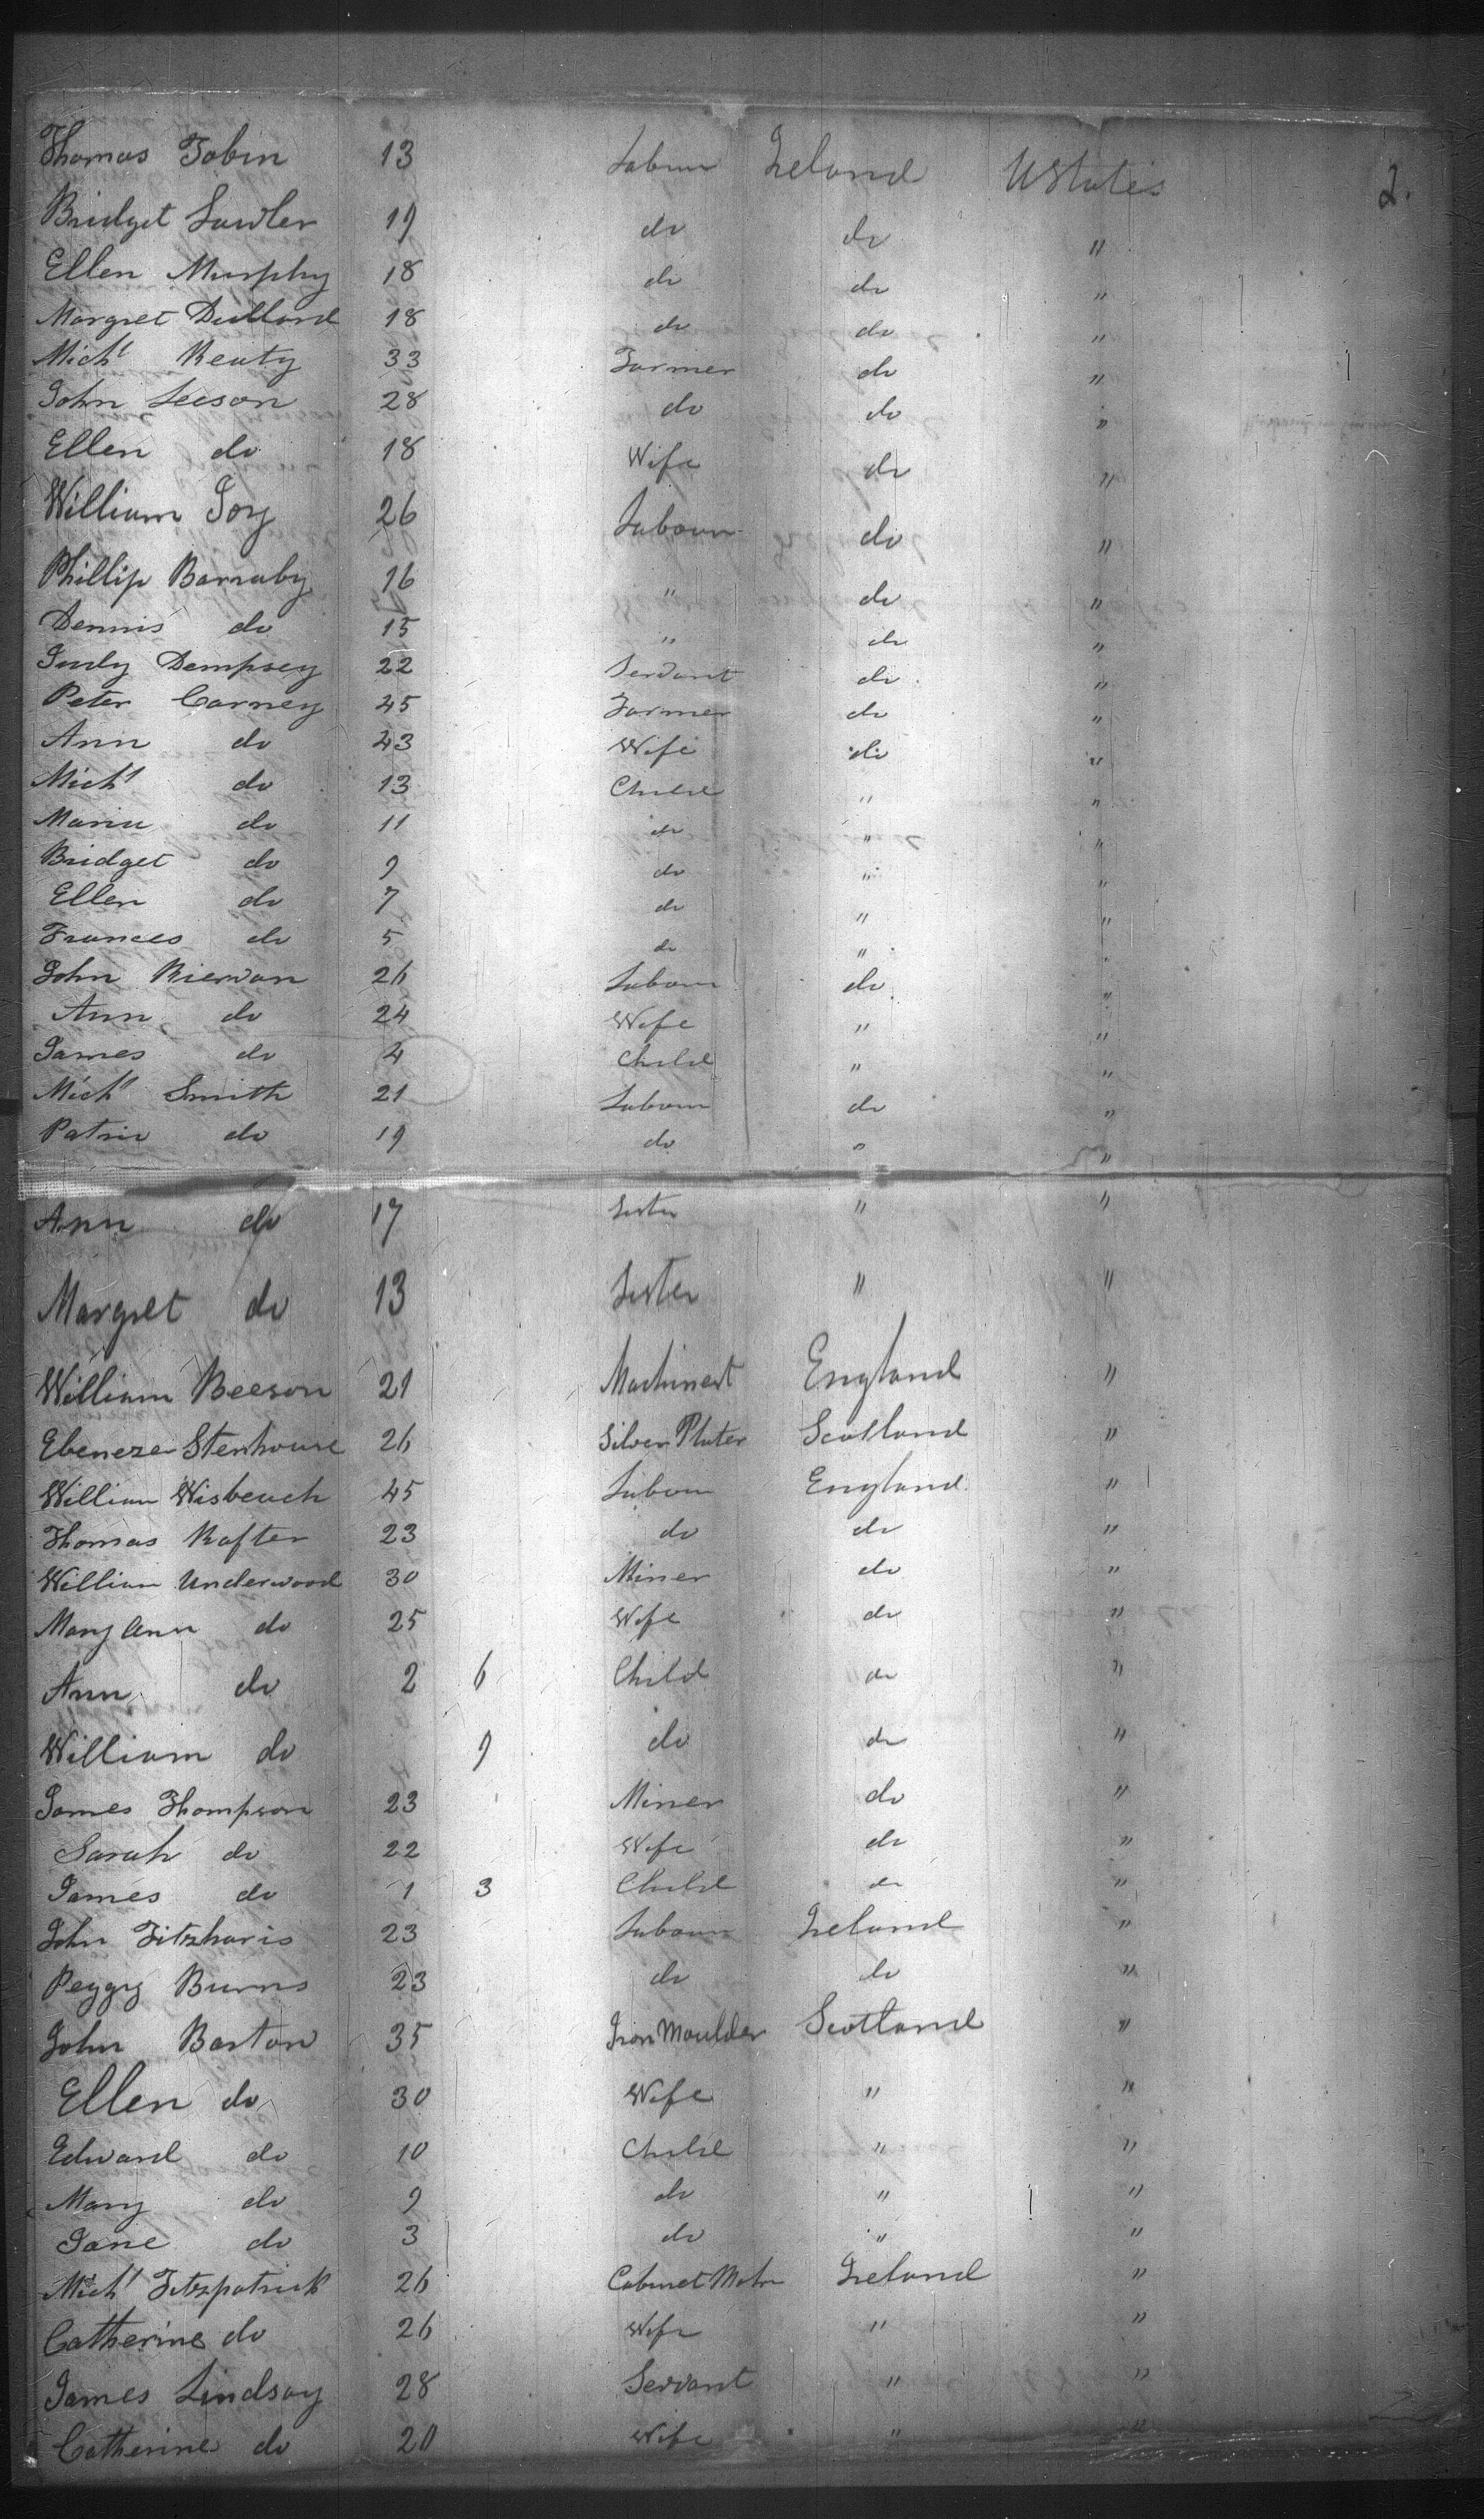 Thomas Tobin 13 Labour Ireland UStates 2.
Bridget Lawler 19 do do "
Ellen Murphy 18 do do "
Margret Dullard 18 do do "
Mich<sup>l</sup> Keaty 33 Farmer do "
John Leeson 28 do do "
Ellen do 18 Wife do "
William Joy 26 Labour do "
Phillip Barnaby 16 " do "
Dennis do 15 " do "
Judy Dempsey 22 Servant do "
Peter Carney 45 Farmer do "
Ann do 43 Wife do "
Mich<sup>l</sup> do 13 Child " "
Maria do 11 do " "
Bridget do 9 do " "
Ellen do 7 do " "
Frances do 5 do " "
John Kierwan 26 Labour do "
Ann do 24 Wife " "
James do 4 Child " "
Mich<sup>l</sup> Smith 21 Labour do "
Patric do 19 do " "
Ann do 17 Sister " "
Margret do 13 Sister " "
William Beeson 21 Machinest England "
Ebeneze Stenhouse 26 Silver Plater Scotland "
William Wisbeach 45 Labour England "
Thomas Rafter 23 do do "
William Underwood 30 Miner do "
Mary Ann do 25 Wife do "
Ann do 2 6 Child do "
William do 9 do do "
James Thompson 23 Miner do "
Sarah do 22 Wife do "
James do 1 3 Child do "
John Fitzharis 23 Labour Ireland "
Peggy Burns 23 do do "
John Barton 35 Iron Moulder Scotland "
Ellen do 30 Wife " "
Edward do 10 Child " "
Mary do 9 do " "
Jane do 3 do " "
Mich<sup>l</sup> Fitzpatrick 26 Cabinet Makr Ireland "
Catherine do 26 Wife " "
James Lindsay 28 Servant " "
Catherine do 20 Wife " "